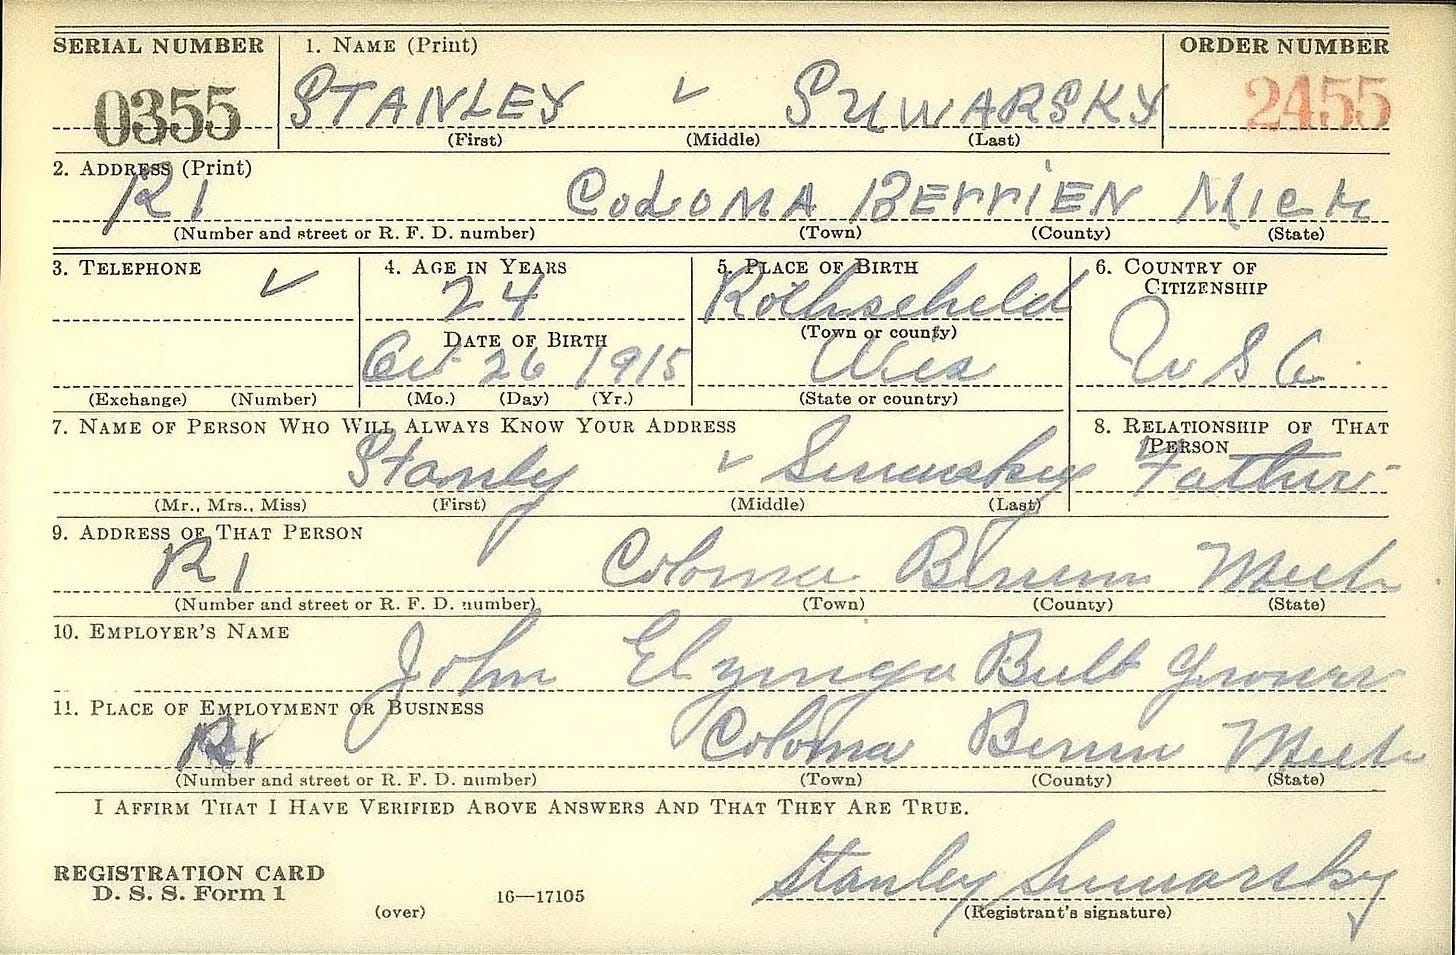 SERIAL NUMBER 1. NAME (Print) ORDER NUMBER
0355 STANLEY ✓ SUWARSKY 2455
(First) (Middle) (Last)
2. ADDRESS (Print)
R1 COLOMA BErriEN MICH
(Number and street or R. F. D. number) (Town) (County) (State)
3. TELEPHONE 4. AGE IN YEARS 5. PLACE OF BIRTH 6. COUNTRY OF
CITIZENSHIP
✓ 24 Rothscheld
DATE OF BIRTH (Town or county)
Oct 26 1915 Wis U S A
(Exchange) (Number) (Mo.) (Day) (Yr.) (State or country)
7. NAME OF PERSON WHO WILL ALWAYS KNOW YOUR ADDRESS 8. RELATIONSHIP OF THAT
PERSON
Stanly ✓ Suwarsky Father
(Mr., Mrs., Miss) (First) (Middle) (Last)
9. ADDRESS OF THAT PERSON
R1 Coloma Berrien Mich
(Number and street or R. F. D. number) (Town) (County) (State)
10. EMPLOYER'S NAME
John Elzinga Bulb Grower
11. PLACE OF EMPLOYMENT OR BUSINESS
R1 Coloma Berrien Mich
(Number and street or R. F. D. number) (Town) (County) (State)
I AFFIRM THAT I HAVE VERIFIED ABOVE ANSWERS AND THAT THEY ARE TRUE.
Stanley Suwarsky
REGISTRATION CARD
D. S. S. Form 1 16—17105
(over) (Registrant's signature)